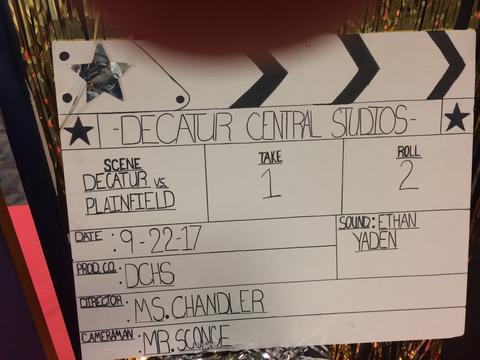 -DECATUR CENTRAL STUDIOS-
SCENE
DECATUR VS.
PLAINFIELD
TAKE
1
ROLL
2
DATE: 9-22-17
SOUND: ETHAN
YADEN
PROD. CO.: DCHS
DIRECTOR: MS. CHANDLER
CAMERAMAN: MR. SCONCE